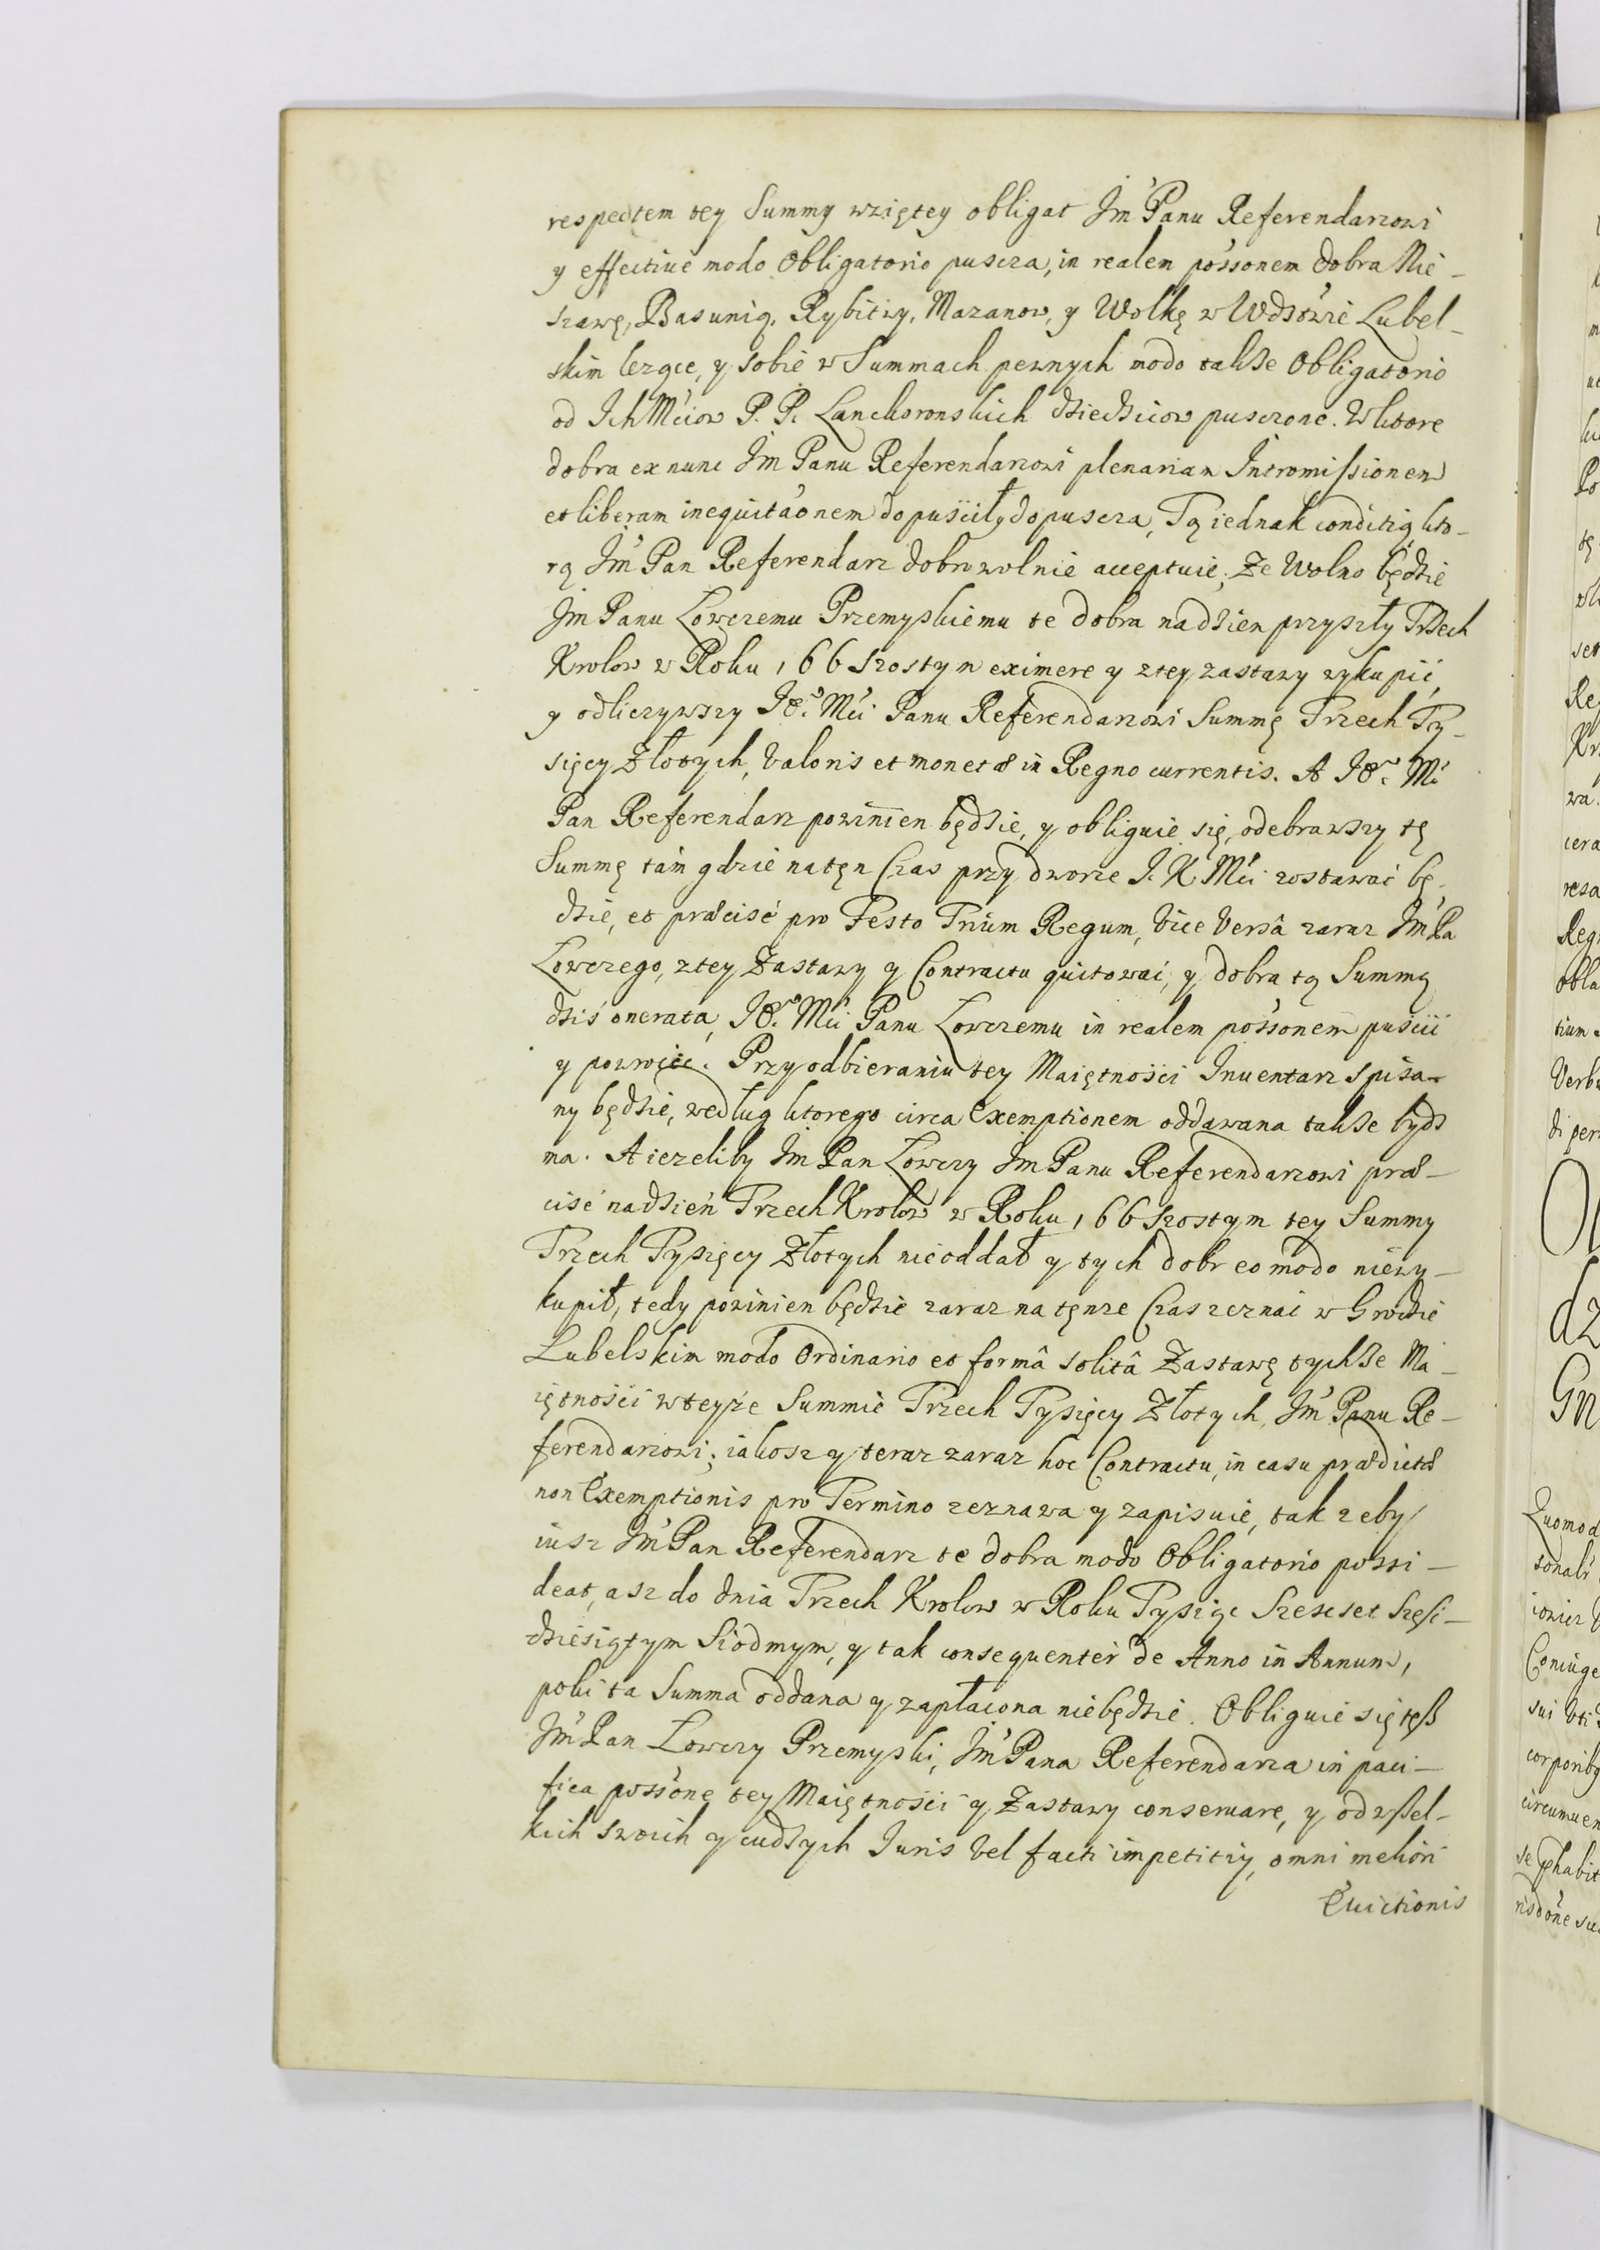 respectem tey Summy wziętey obligat Jm̃ Panu Referendarzowi
y effectiue modo Obligatorio puscza, in realem possonem dobra Nie-
szawę, Basunią, Rybitwy, Mazanow, y Wolkę w Wdztwie Lubel-
skim lezące, y sobie w Summach pewnych modo takze Obligatorio
od Ich Mciow P. P. Lanckoronskich dziedzicow pusczone. W ktore
dobra ex nunc Jm̃ Panu Referendarzowi plenariam Intromissionem
et liberam inequitaõnem dopuscił y dopuscza, Tą iednak conditią kto-
rą Jm̃ Pan Referendarz dobrowolnie acceptuie, Ze Wolno będzie
Jm Panu Łowczemu Przemyskiemu te dobra na dzien przyszły Trzech
Krolow w Roku, 66 szostym eximere y z tey zastawy wykupić,
y odliczywszy Je° Mci Panu Referendarzowi Summę Trzech Ty-
sięcy Złotych, Valoris et monetæ in Regno currentis. A Je° Mc
Pan Referendarz powinien będzie, y obliguie się, odebrawszy tę
Summę tam gdzie na tęn Czas przy dworze J. K Mci zostawać bę-
dzie, et præcisè pro Festo Trium Regum, Vice Versâ zaraz Jm̃ Pa
Łowczego, z tey Zastawy y Contractu quitować, y dobra tą Summą
dziś onerata, Je° Mci Panu Łowczemu in realem possonem puscić
y pozwolić. Przy odbieraniu tey Maiętności Inuentarz spisa-
ny będzie, według ktorego circa Exemptionem oddawana takze bydz
ma. A iezeliby Jm Pan Łowczy Jm Panu Referendarzowi præ-
cisè na dzień Trzech Krolow w Roku, 66 szostym tey Summy
Trzech Tysięcy Złotych nie oddał y tych dobr eo modo niewy-
kupił, tedy powinien będzie zaraz na tęnze Czas zeznać w Grodzie
Lubelskim modo Ordinario et formâ solitâ Zastawę tychze Ma-
iętności w teyże Summie Trzech Tysięcy Złotych, Jm̃ Panu Re-
ferendarzowi; iakosz y teraz zaraz hoc Contractu, in casu prædictæ
non Exemptionis pro Termino zeznawa y zapisuie, tak zeby
iusz Jm̃ Pan Referendarz te dobra modo Obligatorio possi-
deat, asz do dnia Trzech Krolow w Roku Tysiąc Szescset Szesc-
dziesiątym Siodmym, y tak consequenter de Anno in Annum,
poki ta Summa oddana y zapłacona niebędzie. Obliguie się tęsz
Jm̃ Pan Łowczy Przemyski, Jm̃ Pana Referendarza in paci-
fica possone tey Maiętności y Zastawy conseruare, y od wszel-
kich swoich y cudzych Juris Vel facti impetitiy, omni meliori
Euictionis